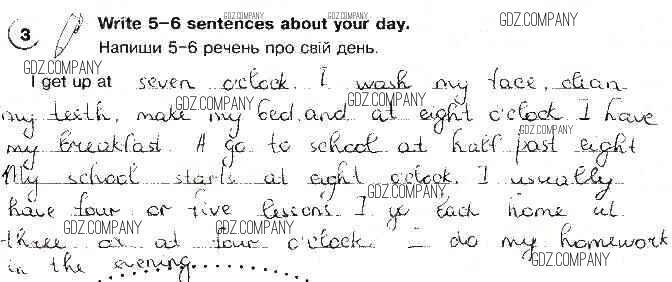 3 Write 5–6 sentences about your day.
Напиши 5–6 речень про свій день.
I get up at seven o'clock. I wash my face, clean
my teeth, make my bed, and at eight o'clock I have
my breakfast. I go to school at half past eight
My school starts at eight o'clock. I usually
have four or five lessons. I go back home at
three or at four o'clock. I do my homework
in the evening.
GDZ.COMPANY
GDZ.COMPANY
GDZ.COMPANY
GDZ.COMPANY
GDZ.COMPANY
GDZ.COMPANY
GDZ.COMPANY
GDZ.COMPANY
GDZ.COMPANY
GDZ.COMPANY
GDZ.COMPANY